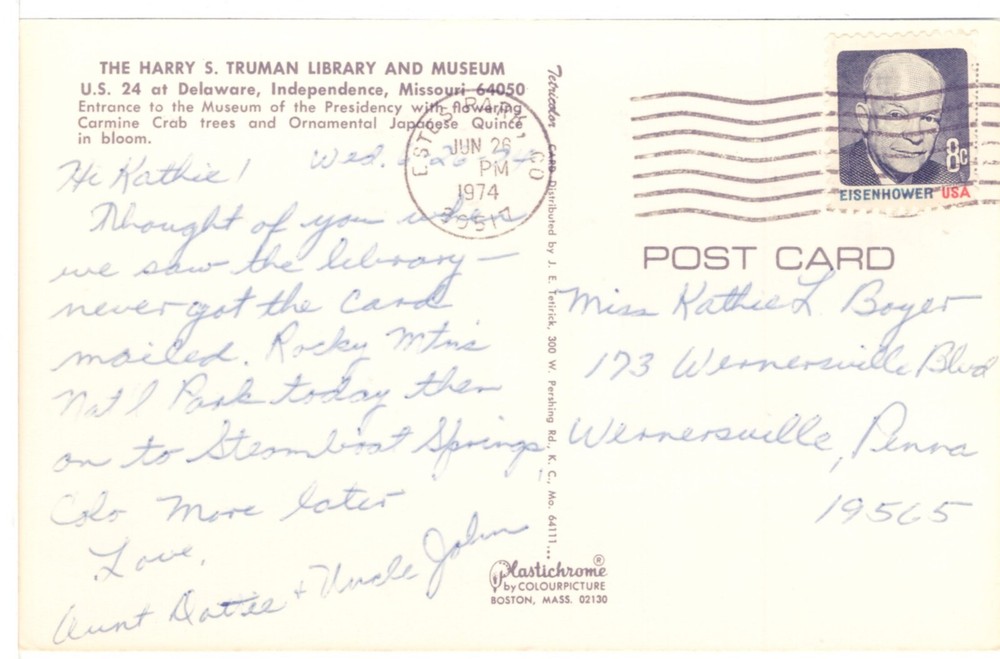 THE HARRY S. TRUMAN LIBRARY AND MUSEUM
U.S. 24 at Delaware, Independence, Missouri 64050
Entrance to the Museum of the Presidency with flowering
Carmine Crab trees and Ornamental Japanese Quince
in bloom.
Hi Kathie! Wed. 6-26
Thought of you when
we saw the library—
never got the card
mailed. Rocky Mtns
Nat'l Park today then
on to Steamboat Springs,
Colo More later
Love,
Aunt Dottie + Uncle John
ESTES PARK, CO
JUN 26
PM
1974
80517
Tetricolor CARD Distributed by J. E. Tetirick, 300 W. Pershing Rd., K. C., Mo. 64111...
8c
EISENHOWER USA
POST CARD
Miss Kathie L. Boyer
173 Wernersville Blvd
Wernersville, Penna
19565
Plastichrome®
by COLOURPICTURE
BOSTON, MASS. 02130